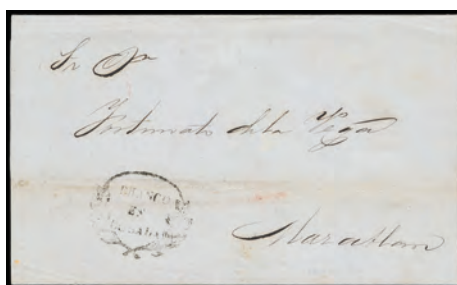 Sr Dn
Fortunato de la Vega
FRANCO
EN
Mazatlan